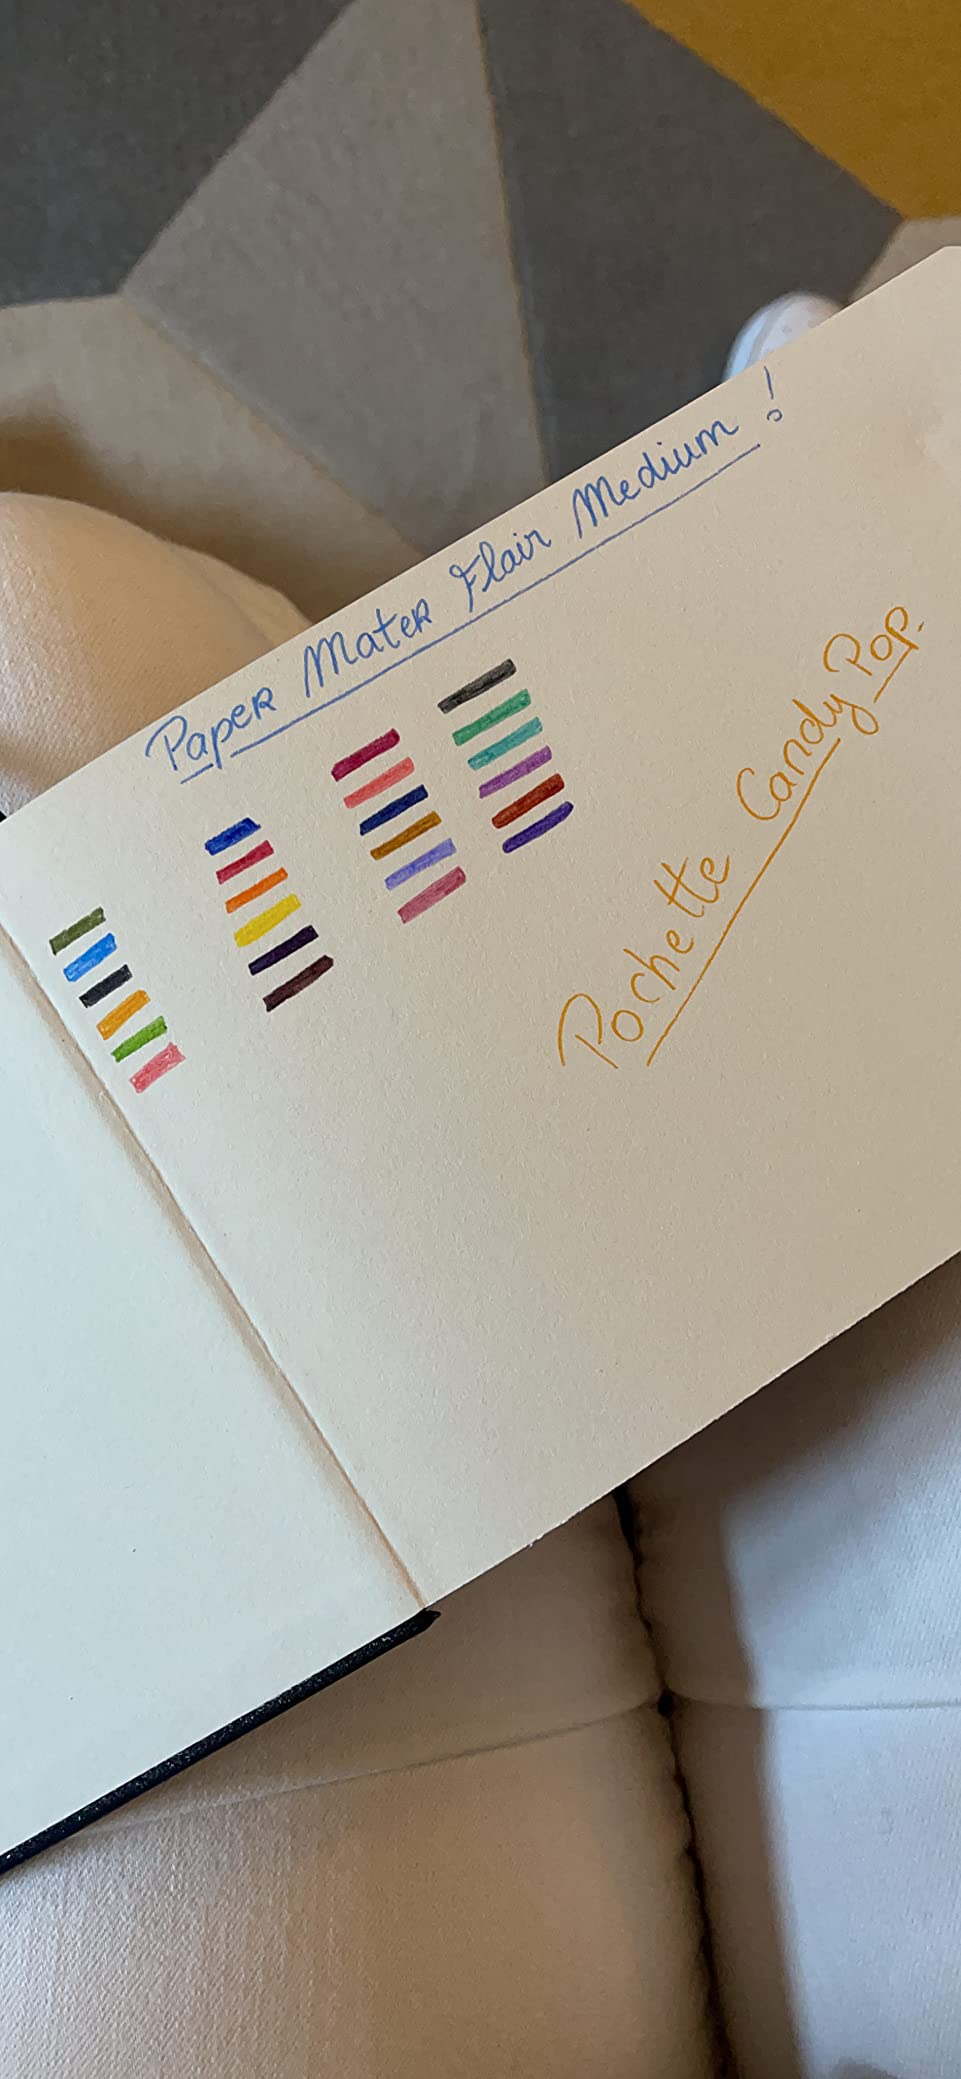 Paper Mater Flair Medium !
Pochette Candy Pop.